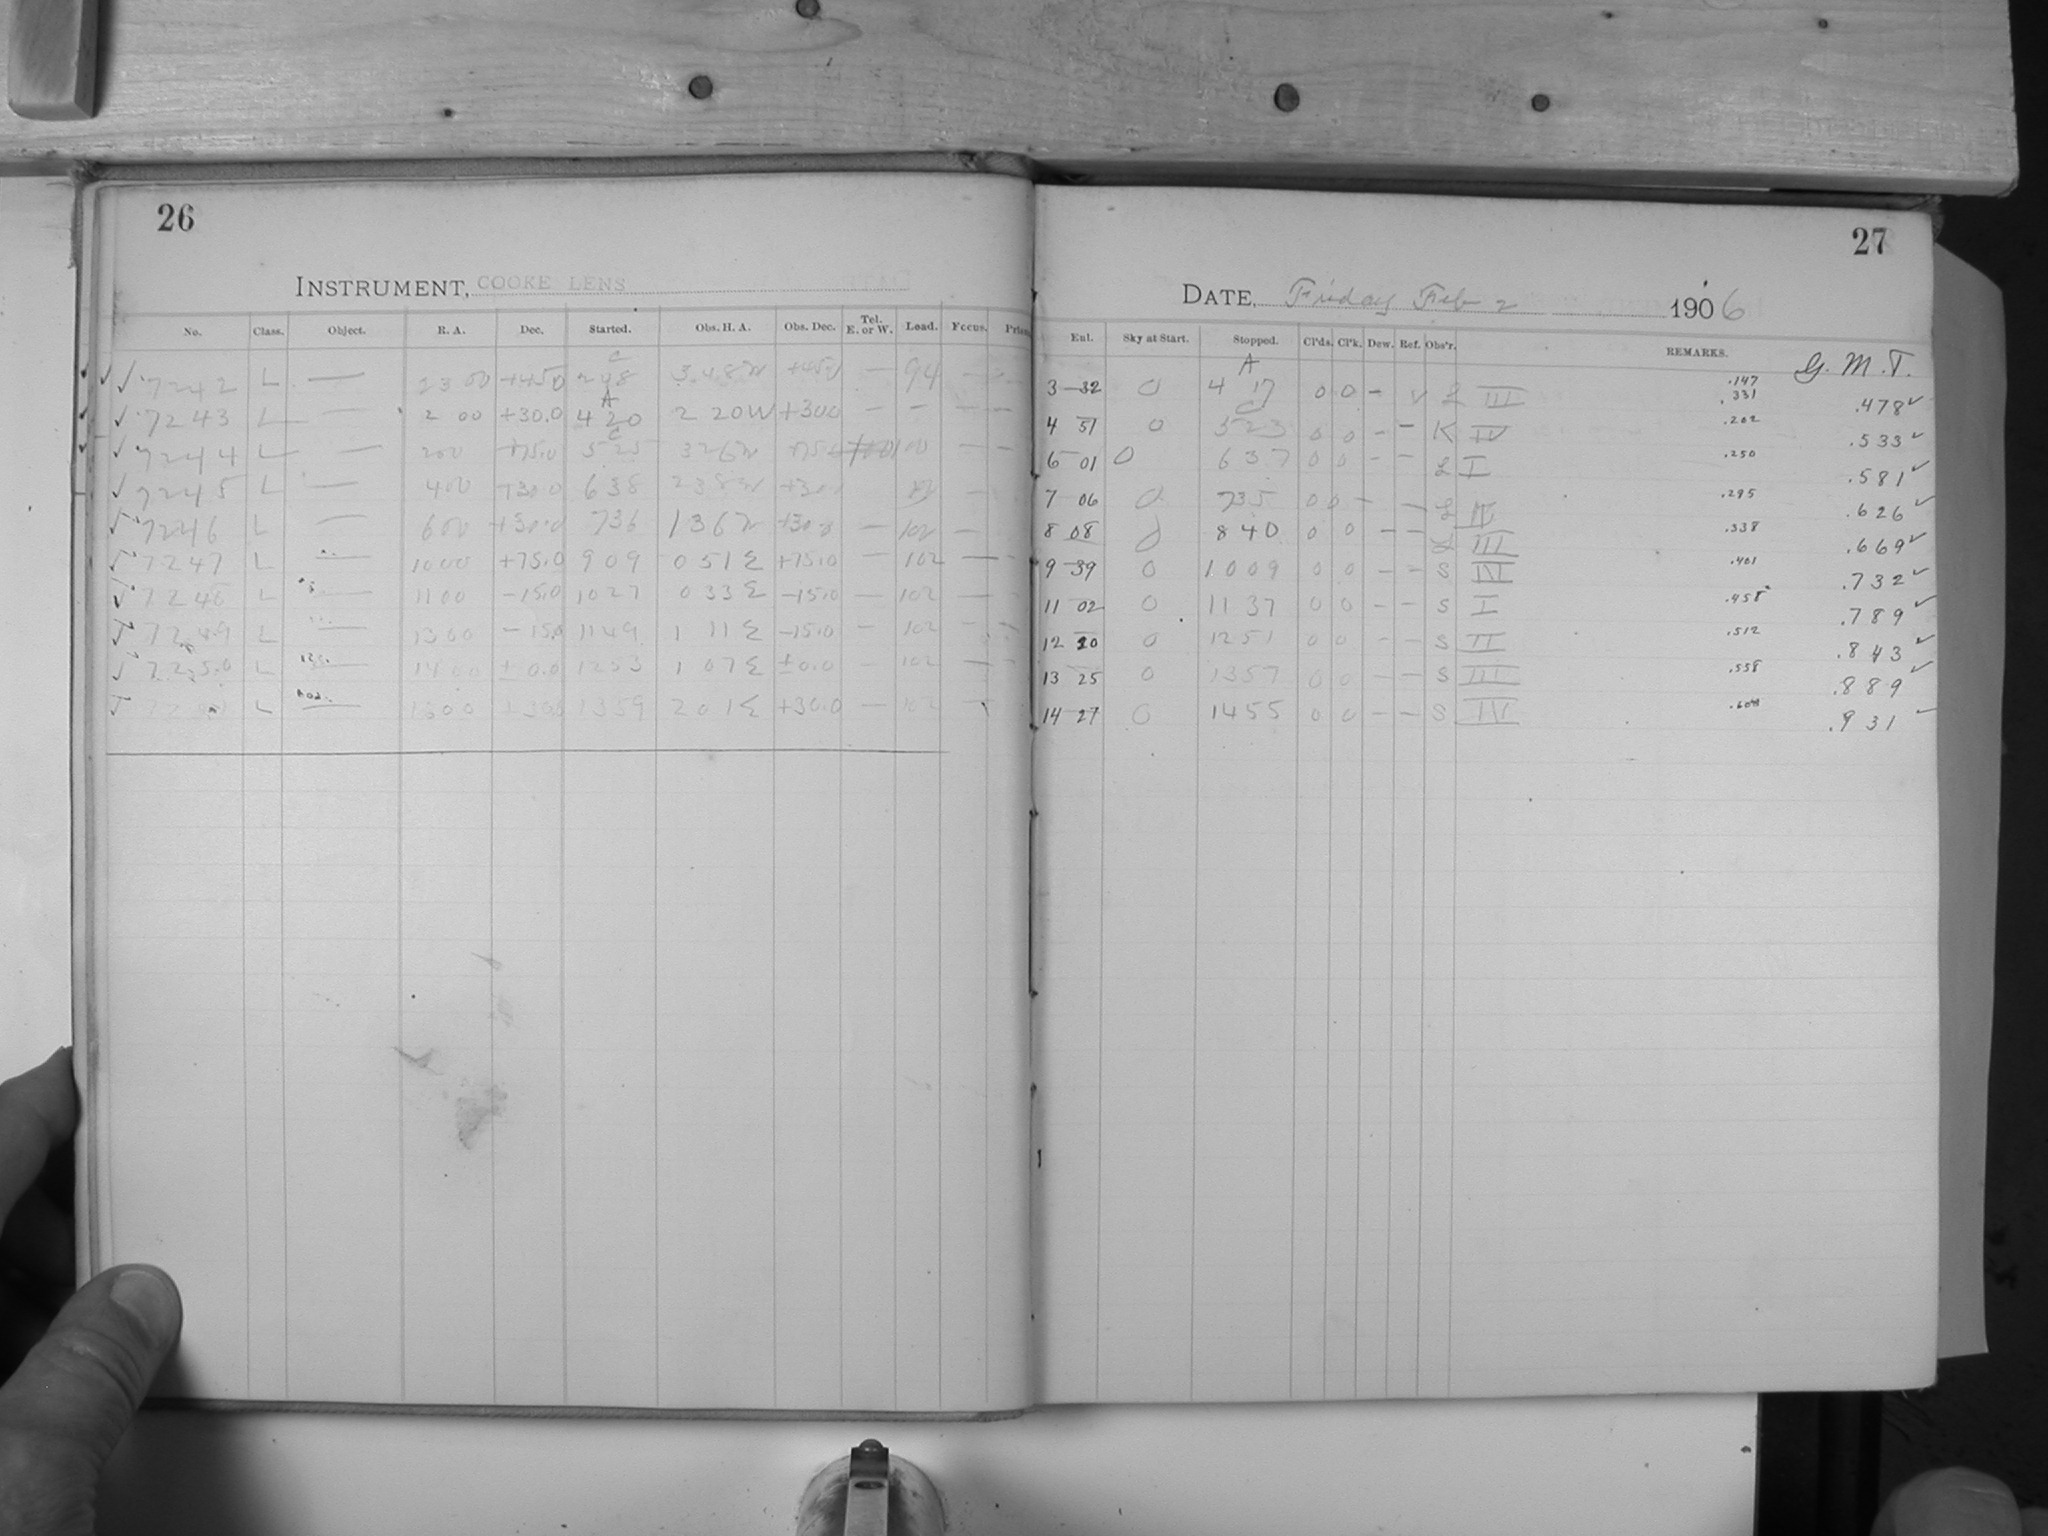 26
INSTRUMENT, COOKE LENS
No. Class. Object. R. A. Dec. Started. Obs. H. A. Obs. Dec. Tel. E. or W. Load. Focus.
C
✓ ✓ ✓ 7242 L — 23 00 +45.0 248 3 48 W +45.0 — 94 — —
A
✓ ✓ 7243 L — 2 00 +30.0 4 20 2 20 W +30.0 — — — —
C
✓ ✓ 7244 L — 2 00 +75.0 5 25 3 26 W +75.0 100 — —
✓ 7245 L — 4 00 +30.0 6 38 2 38 W +30.0 —
✓ 7246 L — 6 00 +30.0 7 36 1 36 W +30.0 — 102 —
✓ 7247 L — 10 00 +75.0 9 09 0 51 E +75.0 — 102 — —
✓ 7248 L — 11 00 -15.0 10 27 0 33 E -15.0 — 102 — —
✓ 7249 L — 13 00 -15.0 11 49 1 11 E -15.0 — 102 — —
✓ 7250 L — 14 00 ±0.0 12 53 1 07 E ±0.0 — 102 — —
✓ L — +30.0 13 59 2 01 E +30.0 — 102
27
DATE, Friday Feb 2 1906
Eul. Sky at Start. Stopped. Cl'ds. Cl'k. Dew. Ref. Obs'r. REMARKS.
A G. M. T.
3 32 0 4 17 0 0 — v L III .147 .331 .478 ✓
C
4 51 0 5 23 0 0 — — K IV .202 .533 ✓
6 01 0 6 37 0 0 — — L I .250 .581 ✓
7 06 0 7 35 0 0 — — L II .295 .626 ✓
8 08 0 8 40 0 0 — — L III .338 .669 ✓
9 39 0 10 09 0 0 — — S IV .401 .732 ✓
11 02 0 11 37 0 0 — — S I .458 .789 ✓
12 20 0 12 51 0 0 — — S II .512 .843 ✓
13 25 0 13 57 0 0 — — S III .558 .889 ✓
14 27 0 14 55 0 0 — — S IV .931 —